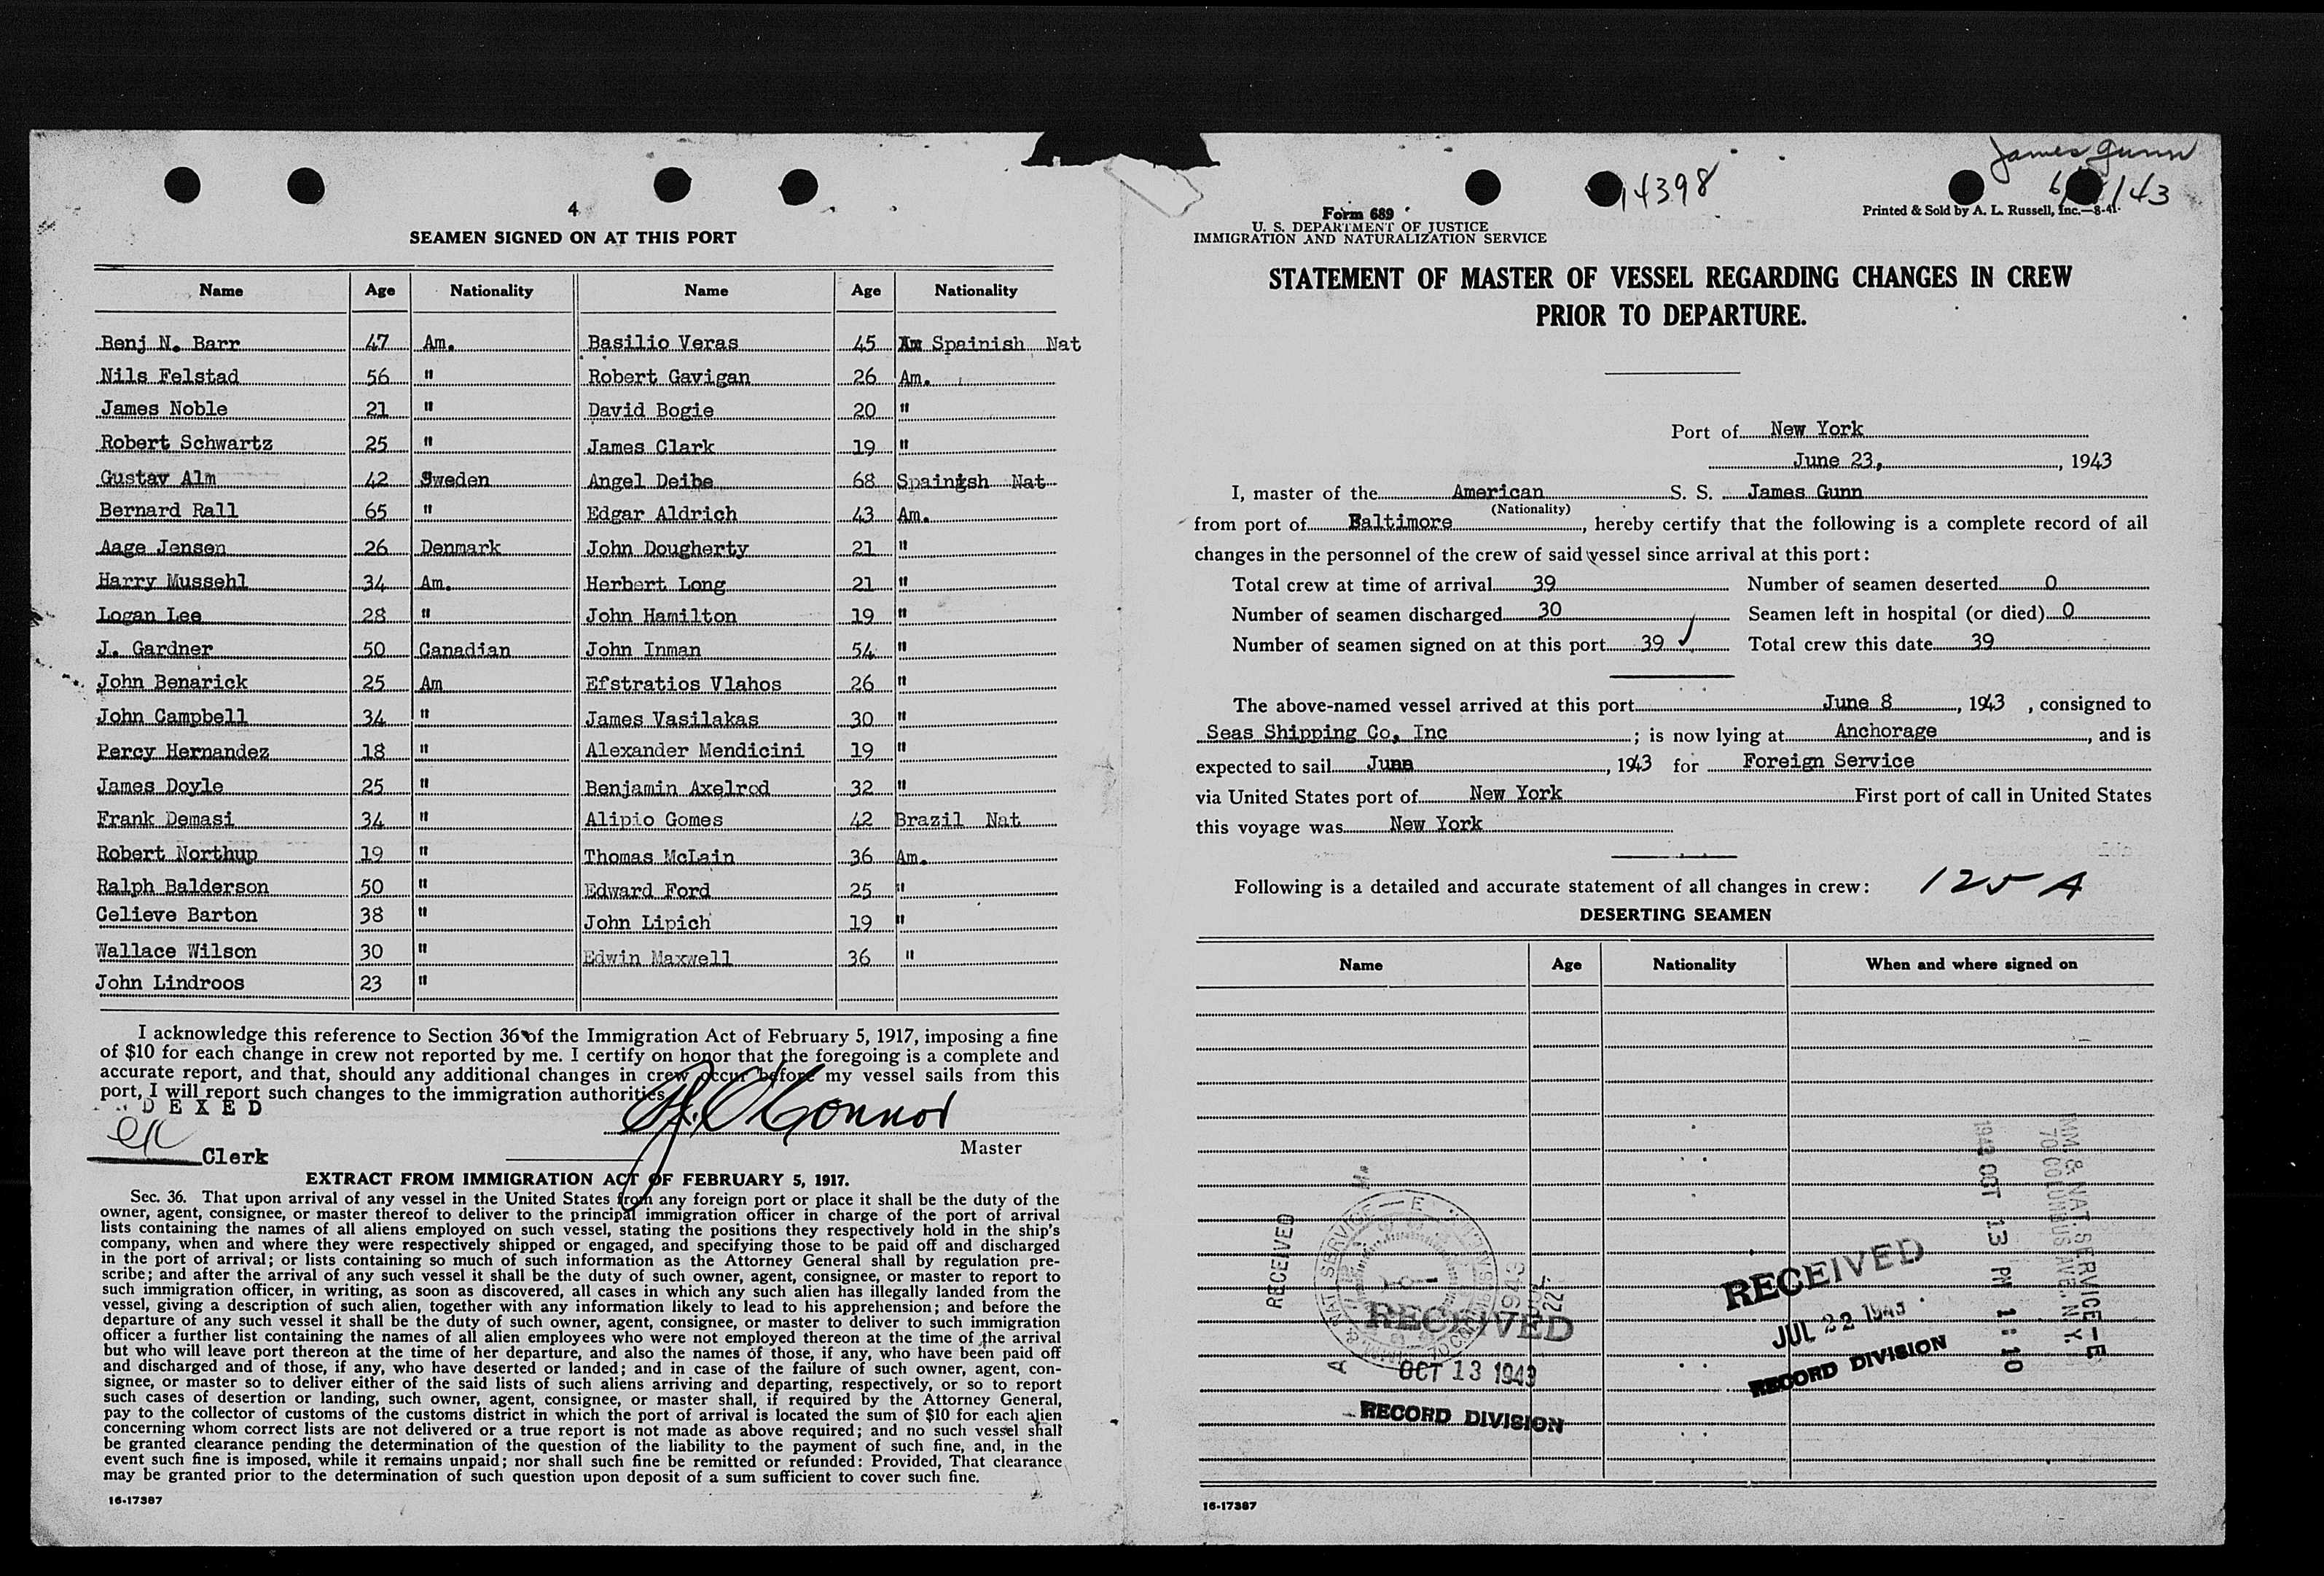 4
SEAMEN SIGNED ON AT THIS PORT
Name Age Nationality Name Age Nationality
Benj N. Barr 47 Am. Basilio Veras 45 Spainish Nat
Nils Felstad 56 " Robert Gavigan 26 Am.
James Noble 21 " David Bogie 20 "
Robert Schwartz 25 " James Clark 19 "
Gustav Alm 42 Sweden Angel Deibe 68 Spainish Nat
Bernard Rall 65 " Edgar Aldrich 43 Am.
Aage Jensen 26 Denmark John Dougherty 21 "
Harry Mussehl 34 Am. Herbert Long 21 "
Logan Lee 28 " John Hamilton 19 "
J. Gardner 50 Canadian John Inman 54 "
John Benarick 25 Am Efstratios Vlahos 26 "
John Campbell 34 " James Vasilakas 30 "
Percy Hernandez 18 " Alexander Mendicini 19 "
James Doyle 25 " Benjamin Axelrod 32 "
Frank Demasi 34 " Alipio Gomes 42 Brazil Nat
Robert Northup 19 " Thomas McLain 36 Am.
Ralph Balderson 50 " Edward Ford 25 "
Celieve Barton 38 " John Lipich 19 "
Wallace Wilson 30 " Edwin Maxwell 36 "
John Lindroos 23 "
I acknowledge this reference to Section 36 of the Immigration Act of February 5, 1917, imposing a fine
of $10 for each change in crew not reported by me. I certify on honor that the foregoing is a complete and
accurate report, and that, should any additional changes in crew occur before my vessel sails from this
port, I will report such changes to the immigration authorities.
DEXED
O'Connor
Clerk
Master
EXTRACT FROM IMMIGRATION ACT OF FEBRUARY 5, 1917.
Sec. 36. That upon arrival of any vessel in the United States from any foreign port or place it shall be the duty of the
owner, agent, consignee, or master thereof to deliver to the principal immigration officer in charge of the port of arrival
lists containing the names of all aliens employed on such vessel, stating the positions they respectively hold in the ship's
company, when and where they were respectively shipped or engaged, and specifying those to be paid off and discharged
in the port of arrival; or lists containing so much of such information as the Attorney General shall by regulation pre-
scribe; and after the arrival of any such vessel it shall be the duty of such owner, agent, consignee, or master to report to
such immigration officer, in writing, as soon as discovered, all cases in which any such alien has illegally landed from the
vessel, giving a description of such alien, together with any information likely to lead to his apprehension; and before the
departure of any such vessel it shall be the duty of such owner, agent, consignee, or master to deliver to such immigration
officer a further list containing the names of all alien employees who were not employed thereon at the time of the arrival
but who will leave port thereon at the time of her departure, and also the names of those, if any, who have been paid off
and discharged and of those, if any, who have deserted or landed; and in case of the failure of such owner, agent, con-
signee, or master so to deliver either of the said lists of such aliens arriving and departing, respectively, or so to report
such cases of desertion or landing, such owner, agent, consignee, or master shall, if required by the Attorney General,
pay to the collector of customs of the customs district in which the port of arrival is located the sum of $10 for each alien
concerning whom correct lists are not delivered or a true report is not made as above required; and no such vessel shall
be granted clearance pending the determination of the question of the liability to the payment of such fine, and, in the
event such fine is imposed, while it remains unpaid; nor shall such fine be remitted or refunded: Provided, That clearance
may be granted prior to the determination of such question upon deposit of a sum sufficient to cover such fine.
16-17387
James Gunn
14398
6/ /43
Form 689
Printed & Sold by A. L. Russell, Inc.—8-41
U. S. DEPARTMENT OF JUSTICE
IMMIGRATION AND NATURALIZATION SERVICE
STATEMENT OF MASTER OF VESSEL REGARDING CHANGES IN CREW
PRIOR TO DEPARTURE.
Port of New York
June 23, , 1943
I, master of the American S. S. James Gunn
(Nationality)
from port of Baltimore , hereby certify that the following is a complete record of all
changes in the personnel of the crew of said vessel since arrival at this port:
Total crew at time of arrival 39 Number of seamen deserted 0
Number of seamen discharged 30 Seamen left in hospital (or died) 0
Number of seamen signed on at this port 39 Total crew this date 39
The above-named vessel arrived at this port June 8 , 1943 , consigned to
Seas Shipping Co, Inc ; is now lying at Anchorage , and is
expected to sail June , 1943 for Foreign Service
via United States port of New York First port of call in United States
this voyage was New York
Following is a detailed and accurate statement of all changes in crew: 125 A
DESERTING SEAMEN
Name Age Nationality When and where signed on
IMM & NAT. SERVICE—E
70 COLUMBUS AVE., N.Y.
1943 OCT 13 PM 1:10
RECEIVED
RECEIVED
OCT 13 1943
RECORD DIVISION
RECEIVED
JUL 22 1943
RECORD DIVISION
16-17387